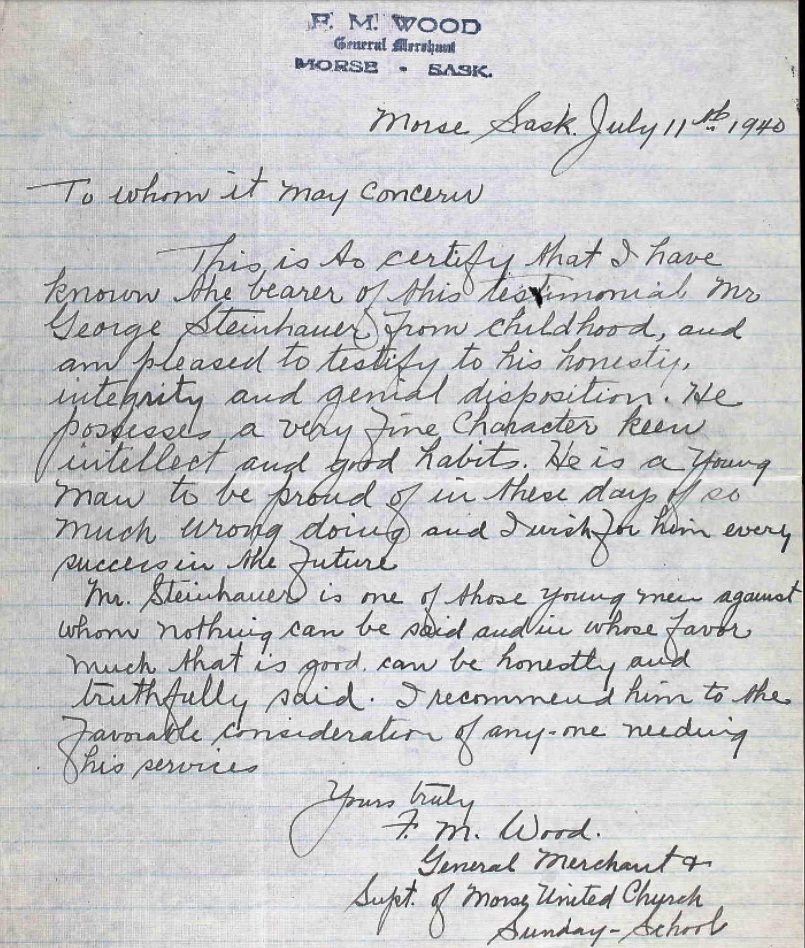 F. M. WOOD
General Merchant
MORSE - SASK.
Morse Sask. July 11th 1940
To whom it may concern
This is to certify that I have
known the bearer of this testimonial Mr
George Steinhauer from childhood, and
am pleased to testify to his honesty,
integrity and genial disposition. He
possesses a very fine Character keen
intellect and good habits. He is a young
man to be proud of in these days of so
much wrong doing and I wish for him every
success in the future
Mr. Steinhauer is one of those young men against
whom nothing can be said and in whose favor
much that is good can be honestly and
truthfully said. I recommend him to the
favorable consideration of any-one needing
his services
Yours truly
F. M. Wood.
General Merchant &
Supt. of Morse United Church
Sunday-School